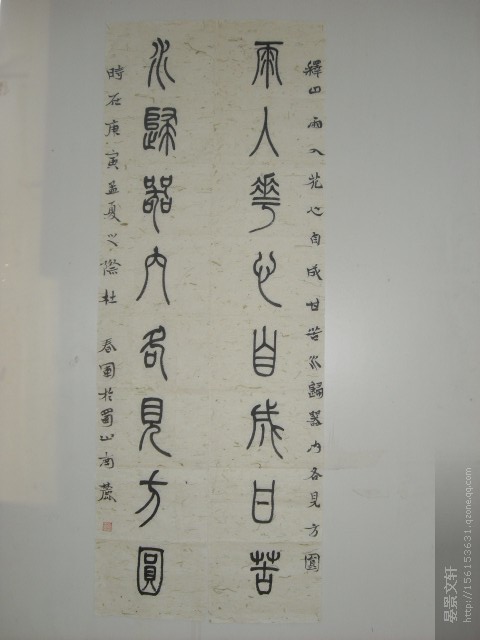 釋曰雨入花心自成甘苦水歸器内各見方圓
雨入華心自成甘苦
水歸器内各見方圓
時在庚寅孟夏之際杜春圃於蜀山南麓
晏景文轩
http://156153631.qzone.qq.com